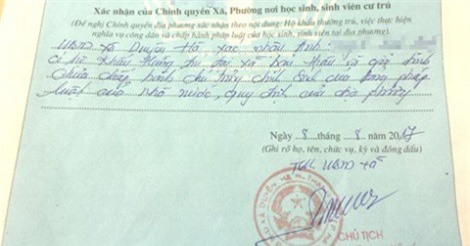 Xác nhận của Chính quyền Xã, Phường nơi học sinh, sinh viên cư trú
(Đề nghị Chính quyền địa phương xác nhận theo nội dung: Hộ khẩu thường trú, việc thực hiện
nghĩa vụ công dân và chấp hành pháp luật của học sinh, sinh viên tại địa phương)
UBND xã Duyên Hà xác nhận Anh:
có hộ khẩu thường trú tại xã bản thân và gia đình
chưa chấp hành chủ trương chính sách của pháp
luật của nhà nước, quy định của địa phương
Ngày 8 tháng 8 năm 2017
(Ghi rõ họ, tên, chức vụ, ký và đóng dấu)
TM UBND xã
CHỦ TỊCH